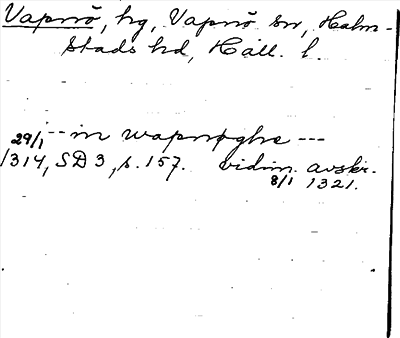 Vapnö, hg, Vapnö sn, Halm-
stads hd, Hall. l.
29/1 -- in wapnøghe ---
1314, SD 3, s. 157. vidim. avskr.
8/1 1321.